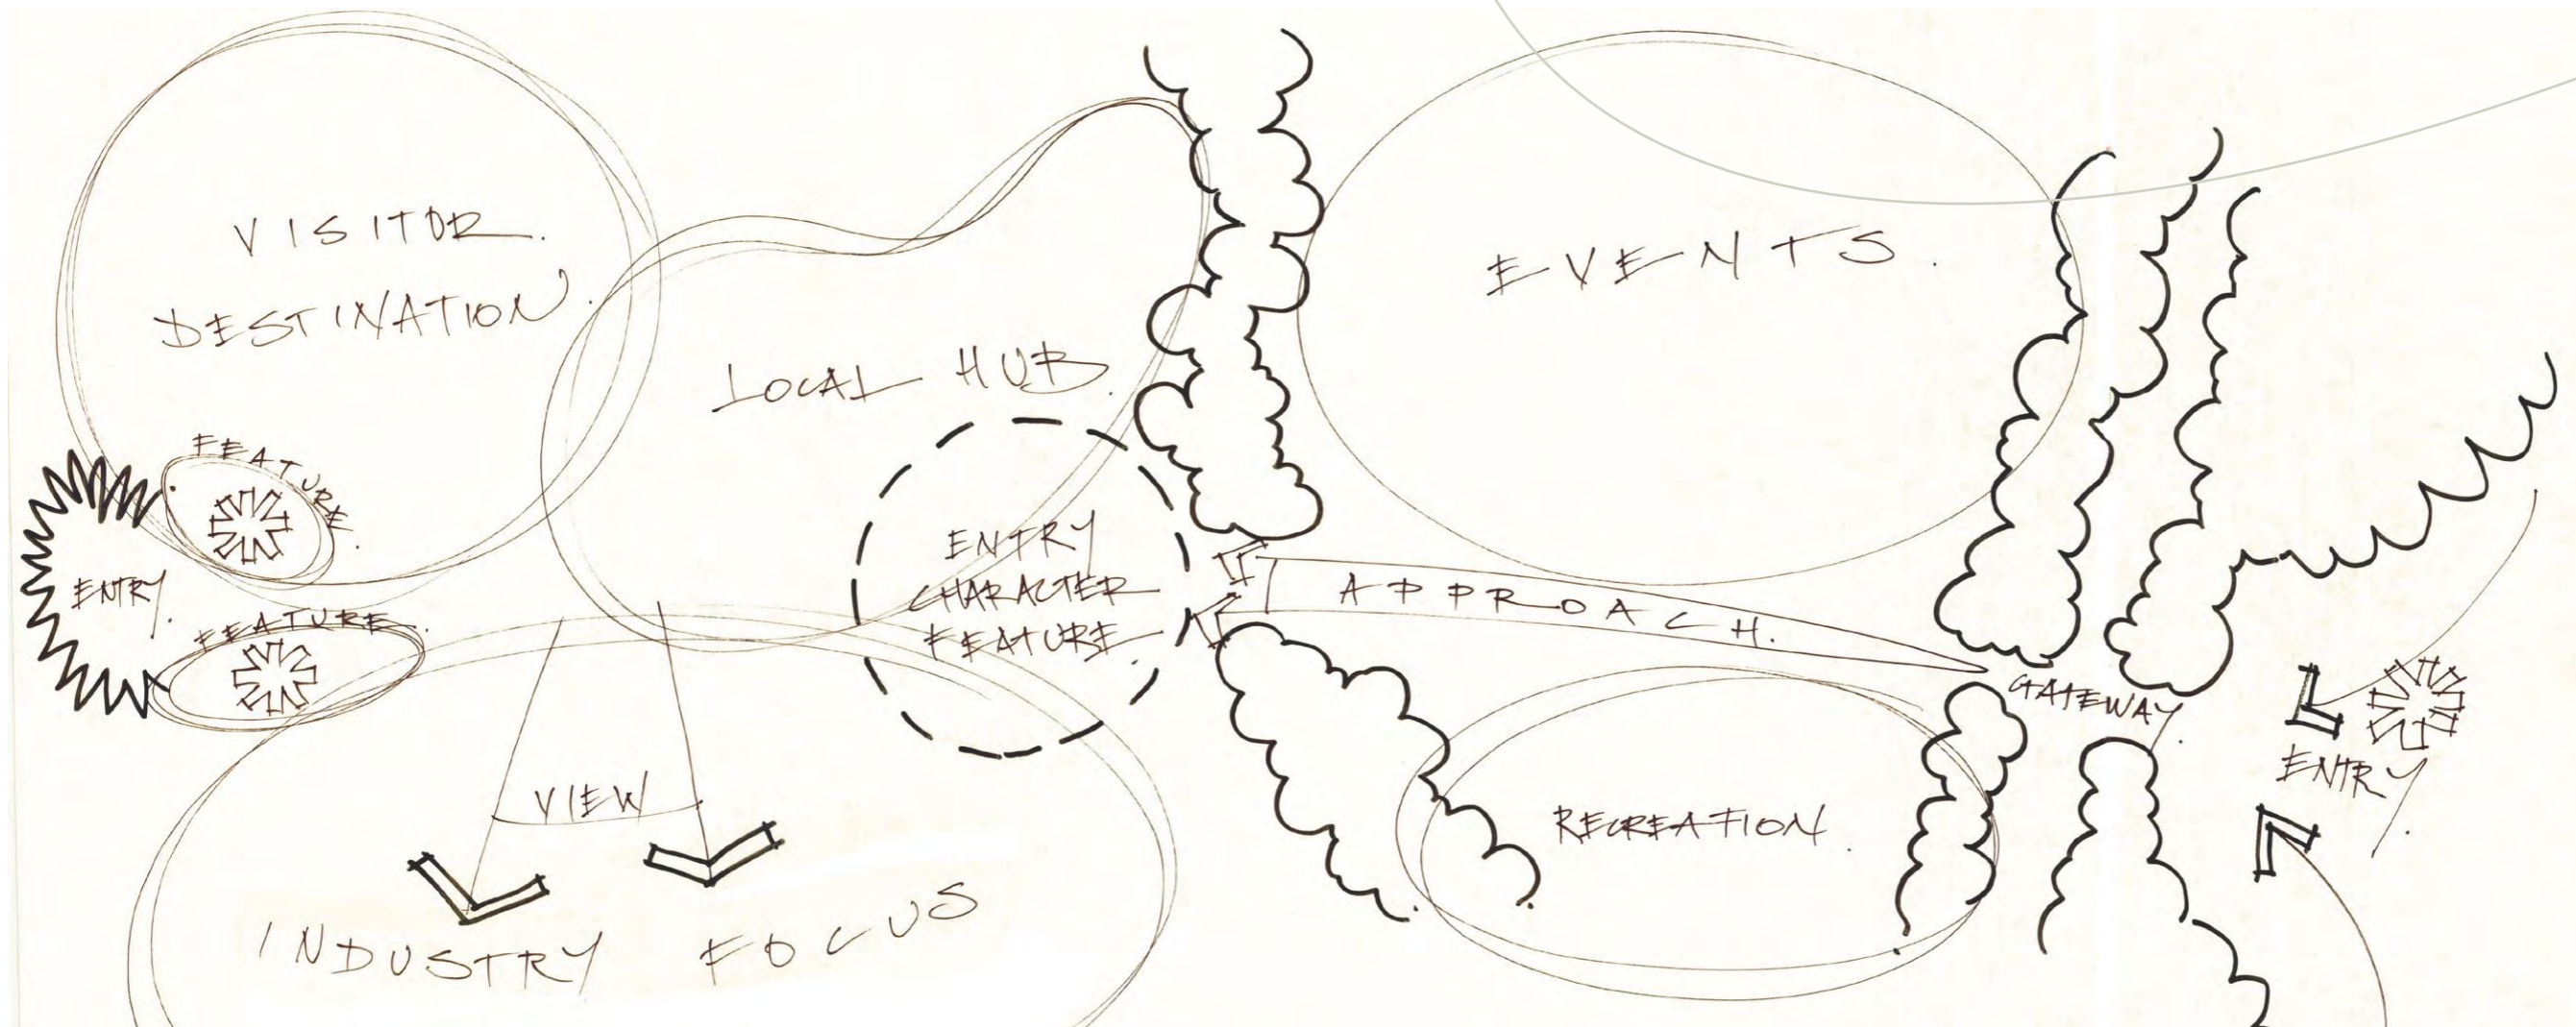 VISITOR
DESTINATION
LOCAL HUB
EVENTS
FEATURE
ENTRY
FEATURE
ENTRY
CHARACTER
FEATURE
APPROACH
GATEWAY
ENTRY
VIEW
RECREATION
INDUSTRY FOCUS